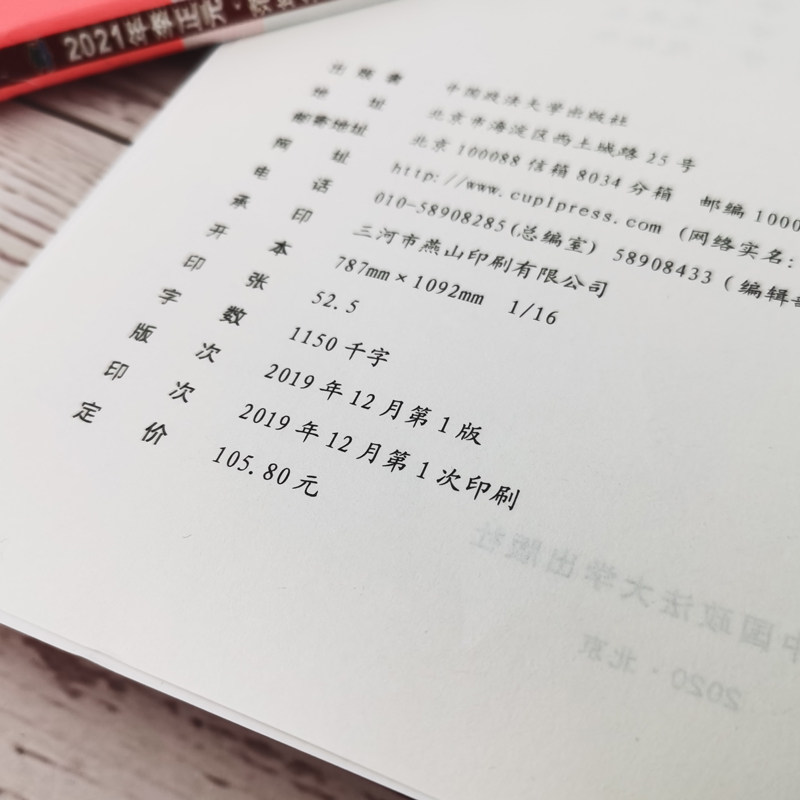 2021年李正元·
出 版 者 中国政法大学出版社
地 址 北京市海淀区西土城路 25 号
邮寄地址 北京 100088 信箱 8034 分箱 邮编 1000
网 址 http://www.cuplpress.com (网络实名:
电 话 010-58908285(总编室) 58908433 (编辑
承 印 三河市燕山印刷有限公司
开 本 787mm × 1092mm 1/16
印 张 52.5
字 数 1150 千字
版 次 2019 年 12 月第 1 版
印 次 2019 年 12 月第 1 次印刷
定 价 105.80 元
中国政法大学出版社
2020 · 北京